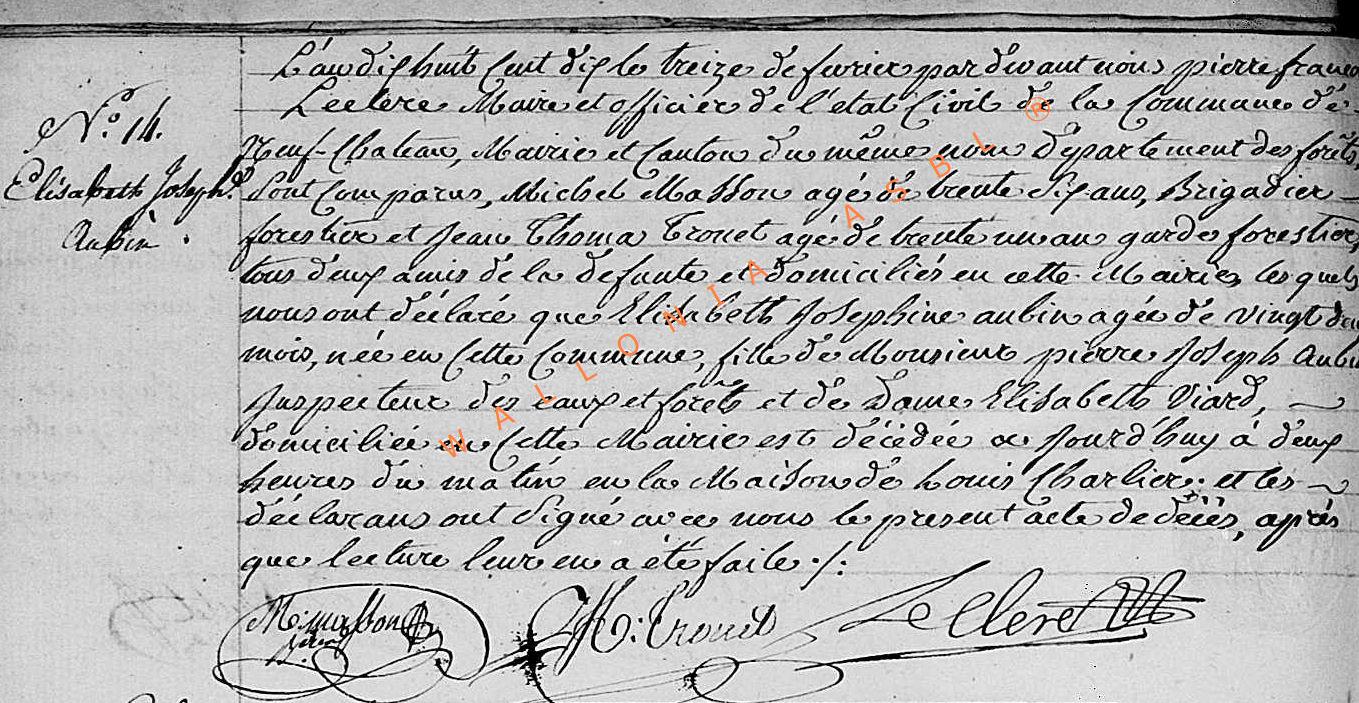 L'an dix huit cent dix le treize de fevrier par devant nous pierre franco
Leclere Maire et officier de l'état Civil de la Commune de
N.o 14.
Neuf-Chateau, Mairie et Canton du même nom Département des forêts,
Elisabeth Joseph.e
sont comparus, Michel Masson agé de trente six ans, Brigadier
Aubin.
forestier et Jean Thoma Trouet agé de trente un ans garde forestier,
tous deux amis de la defunte et domiciliés en cette Mairie, les quels
nous ont déclaré que Elisabeth Josephine aubin agée de vingt deux
mois, née en Cette Commune, fille de Monsieur pierre Joseph Aubin
Inspecteur des eaux et forêts et de Dame Elisabeth Viard,
domiciliée en Cette Mairie est décédée ce Jourd'huy à deux
heures du matin en la Maison de Louis Charlier. et les
déclarans ont Signé avec nous le present acte de décès, après
que lecture leur en a été faite ./.
M: masson
Th: Trouet
LeClere
WALLONIA ASBL ®